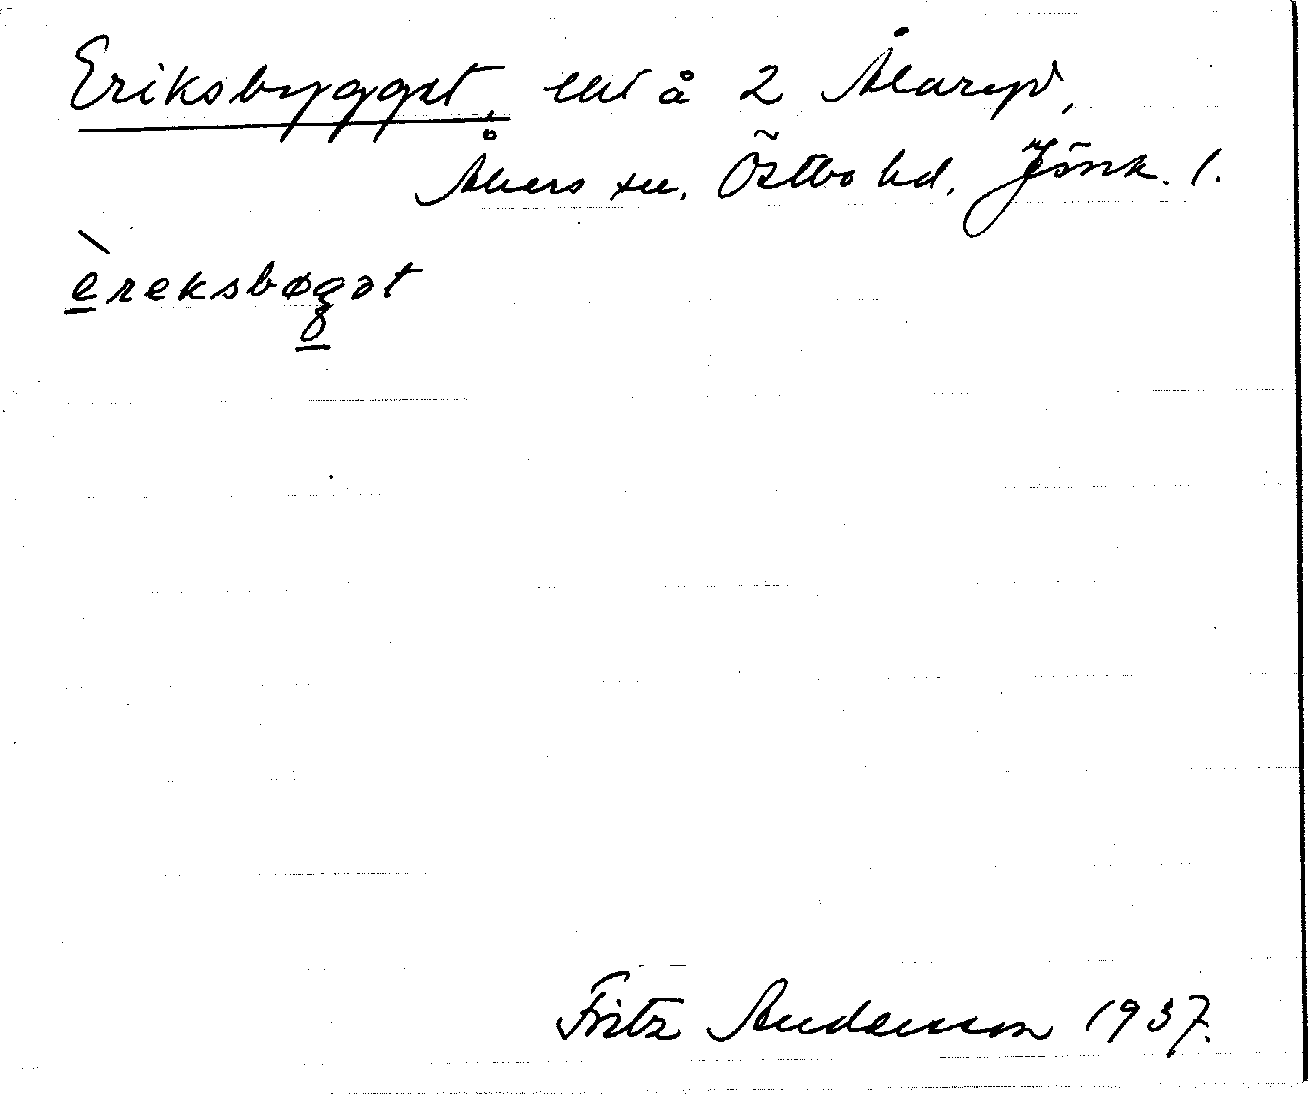 Eriksbygget, till å 2 Ålaryd,
Åkers sn. Östbo hd. Jönk. l.
èreksbøgət
Fritz Andersson 1937.